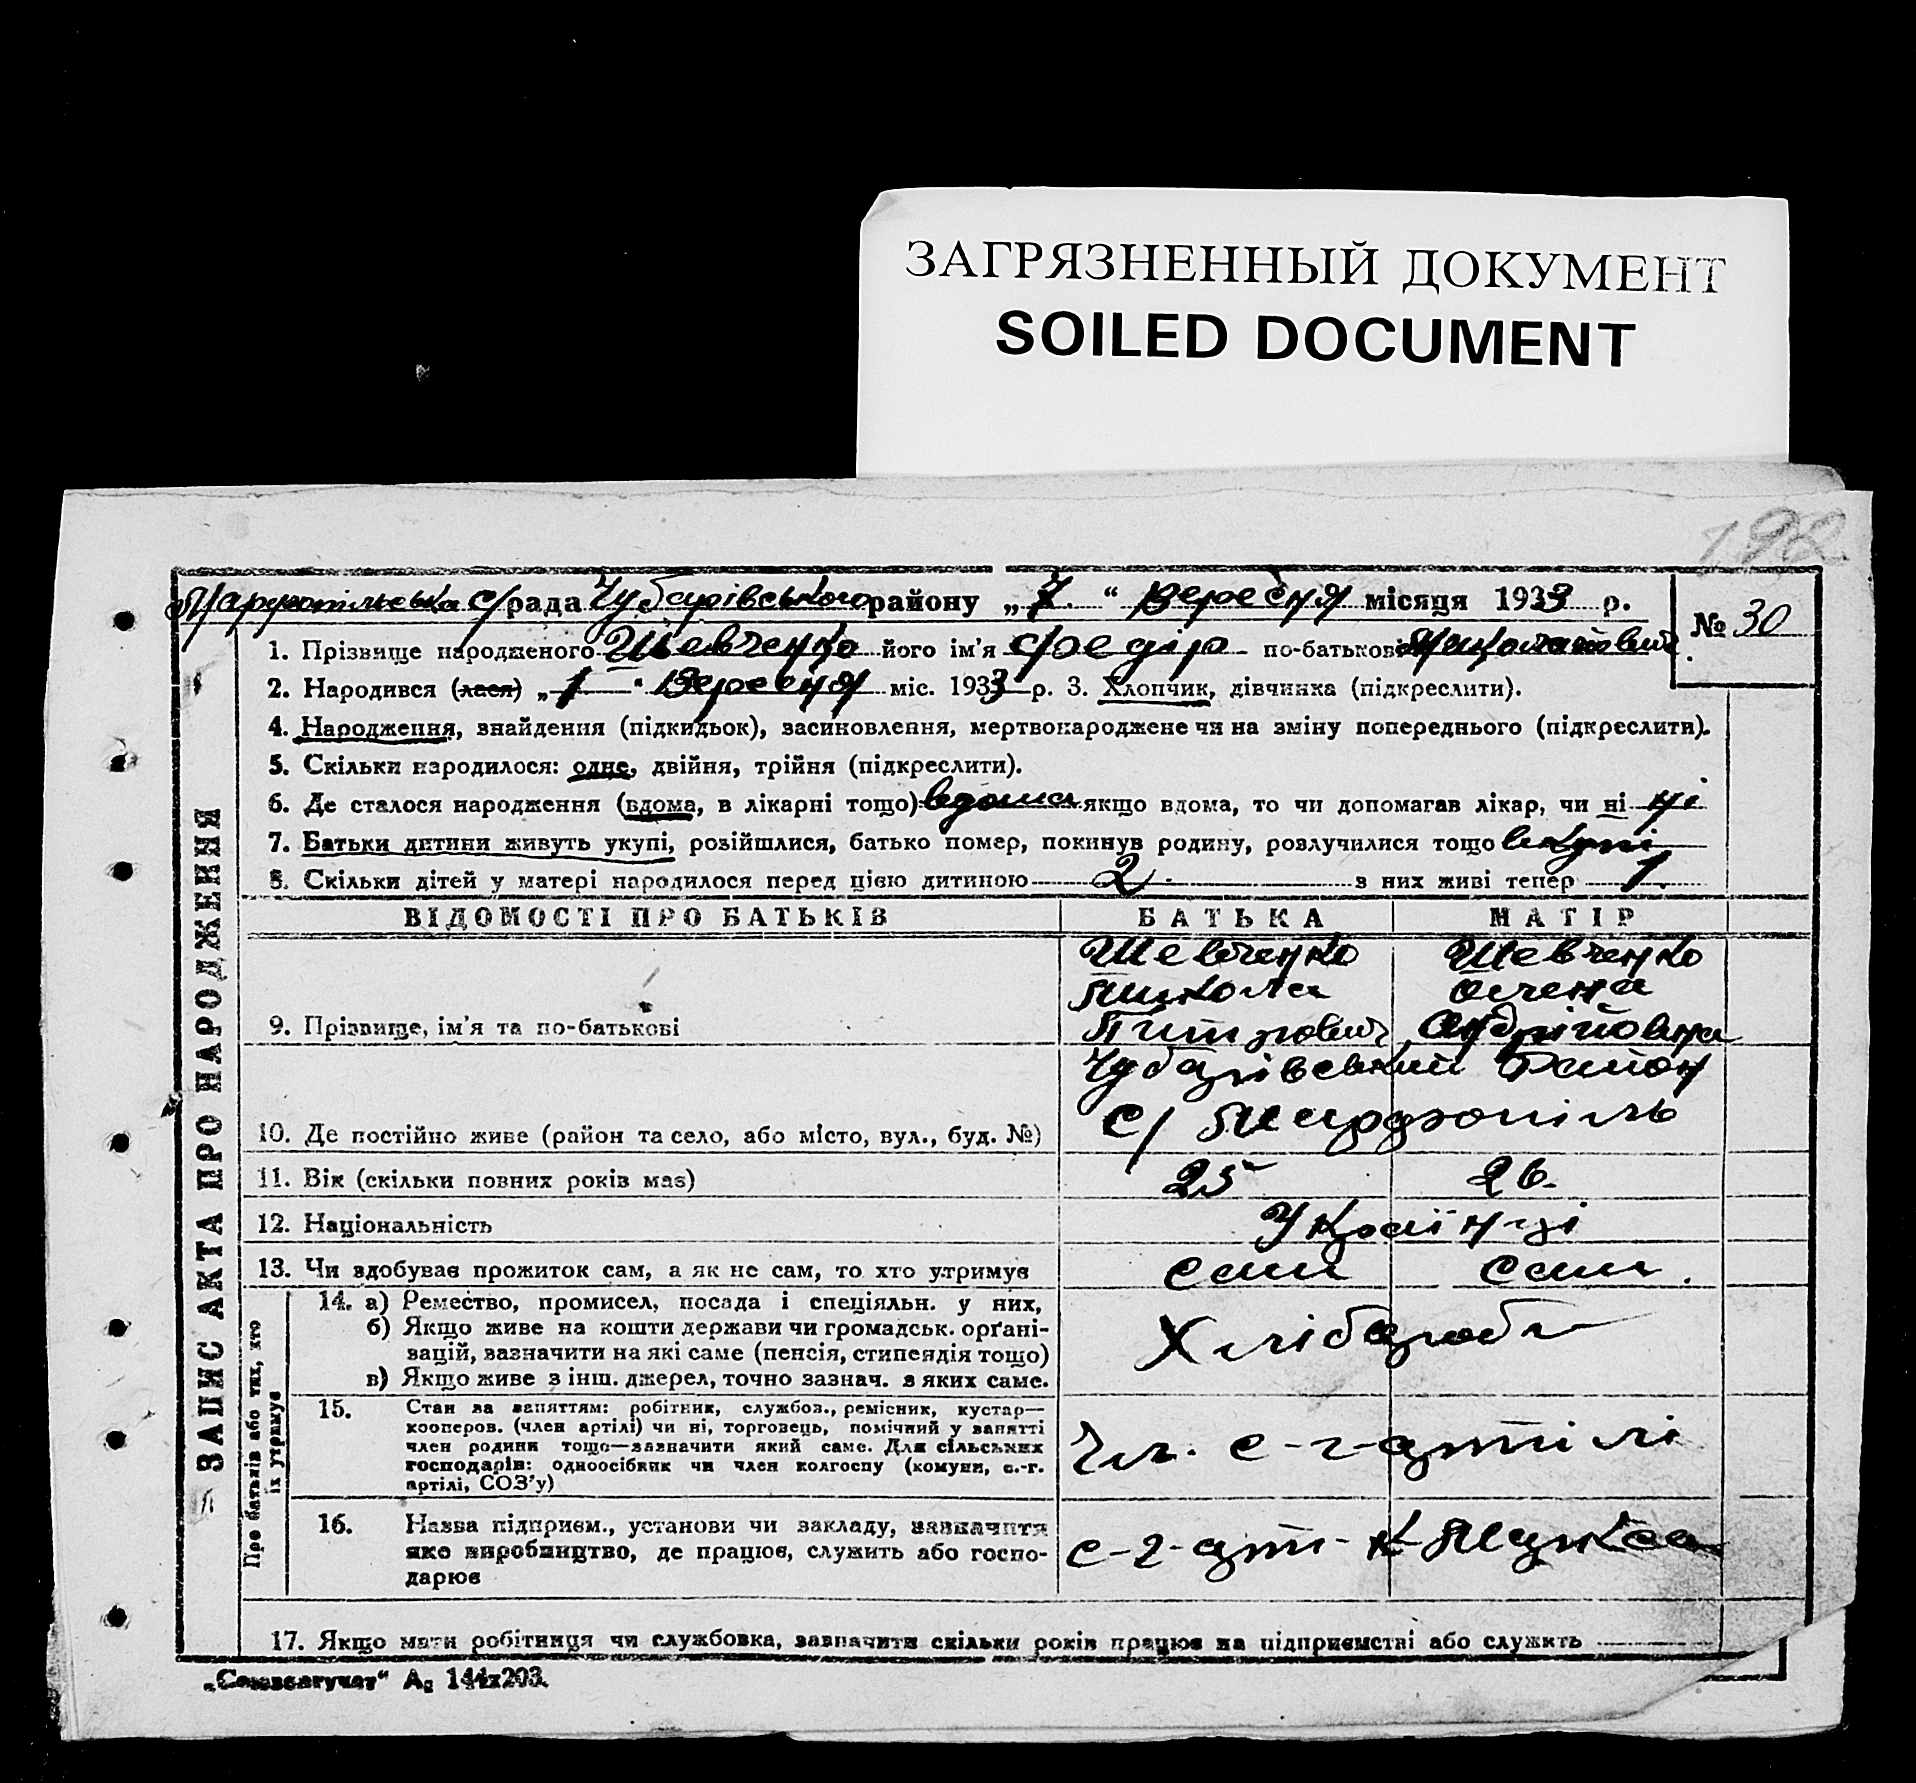 ЗАГРЯЗНЕННЫЙ ДОКУМЕНТ
SOILED DOCUMENT
192
с/рада Чубарівського району „7.“ Вересня місяця 1933 р.
№ 30
1. Прізвище народженого Шевченко його ім'я Федір по-батькові Миколайович
2. Народився (лася) „1“ Вересня міс. 1933 р. 3. Хлопчик, дівчинка (підкреслити).
4. Народження, знайдення (підкидьок), засиновлення, мертвонароджене чи на зміну попереднього (підкреслити).
5. Скільки народилося: одне, двійня, трійня (підкреслити).
6. Де сталося народження (вдома, в лікарні тощо) вдома якщо вдома, то чи допомагав лікар, чи ні ні
7. Батьки дитини живуть укупі, розійшлися, батько помер, покинув родину, розлучилися тощо вкупі
8. Скільки дітей у матері народилося перед цією дитиною 2. з них живі тепер 1.
ЗАПИС АКТА ПРО НАРОДЖЕННЯ
ВІДОМОСТІ ПРО БАТЬКІВ БАТЬКА МАТІР
Шевченко Шевченко
Микола Олена
9. Прізвище, ім'я та по-батькові Андрійовна
Чубарівський Район
10. Де постійно живе (район та село, або місто, вул., буд. №) с/
11. Вік (скільки повних років має) 25 26.
12. Національність Українці
13. Чи здобуває прожиток сам, а як не сам, то хто утримує сам сам.
Про батьків або тих, хто
їх утримує
14. а) Ремество, промисел, посада і спеціяльн. у них,
б) Якщо живе на кошти держави чи громадськ. орґані-
зацій, зазначити на які саме (пенсія, стипендія тощо)
в) Якщо живе з інш. джерел, точно зазнач. з яких саме.
Хлібороби
15. Стан за заняттям: робітник, службов., ремісник, кустар—
кооперов. (член артілі) чи ні, торговець, помічний у занятті
член родини тощо—зазначити який саме. Для сільських
господарів: одноосібник чи член колгоспу (комуни, с.-г.
артілі, СОЗ'у)
Чл. с-г-артілі
16. Назва підприєм., установи чи закладу, зазначити
яке виробництво, де працює, служить або госпо-
дарює
с-г-арт- К-Маркса
17. Якщо мати робітниця чи службовка, зазначити скільки років працює на підприємстві або служить
„Союзоргучет“ А₅ 144х203.